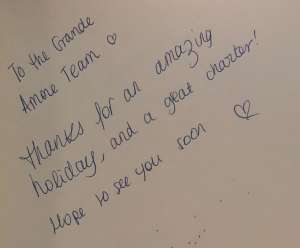 To the Grande
Amore Team ♡
Thanks for an amazing
holiday, and a great charter!
Hope to see you soon ♡